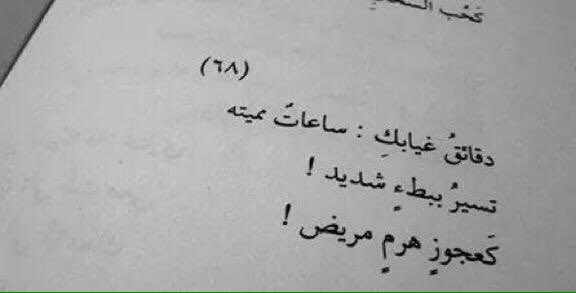 كَحُب
(٦٨)
دقائقُ غيابكِ : ساعاتٌ مميته
تسيرُ ببطءٍ شديد !
كَعجوزٍ هرمٍ مريض !